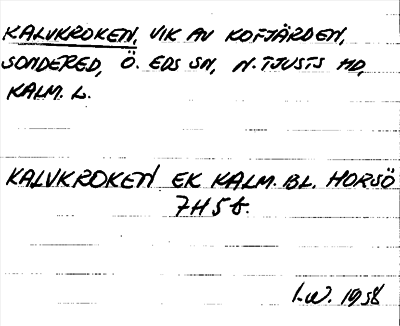 KALVKROKEN, VIK AV KOFJÄRDEN,
SONDERED, Ö. EDS SN, N. TJUSTS HD,
KALM. L.
KALVKROKEN EK KALM. BL. HORSÖ
7H 5f.
I.W. 1958